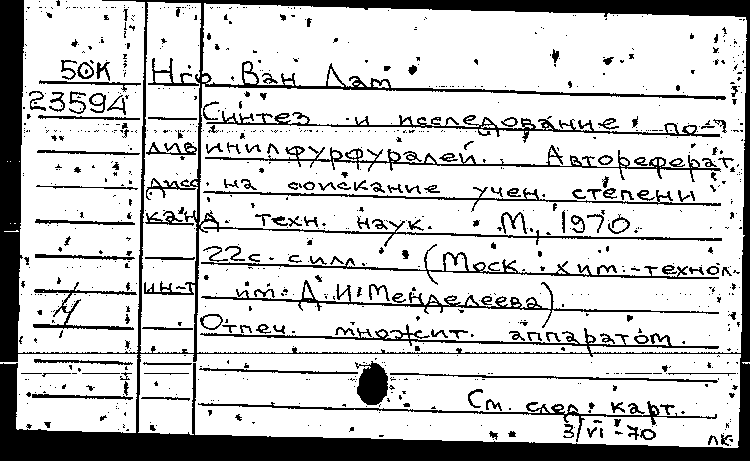 50К Нго Ван Лам
23594
Синтез и исследование по-
ливинилфурфуралей. Автореферат
дисс. на соискание учен. степени
канд. техн. наук. М., 1970.
22с. с илл. (Моск. хим.-технол.
ин-т им. Д.И. Менделеева).
Отпеч. множит. аппаратом.
См. след. карт.
3/VI-70 ЛК